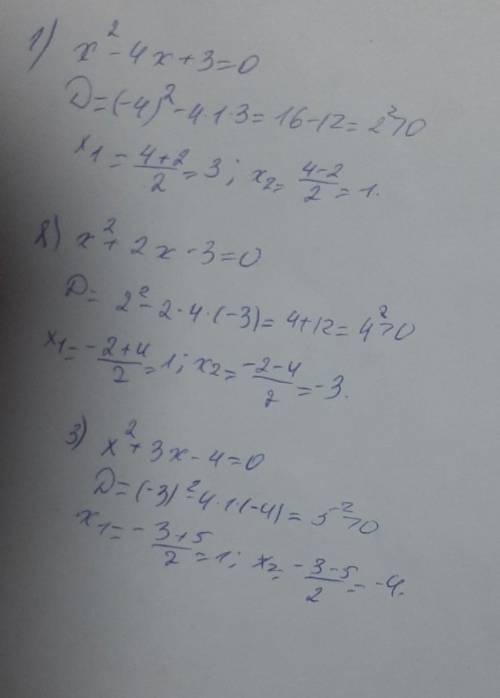 1) x² - 4x + 3 = 0
D = (-4)² - 4·1·3 = 16 - 12 = 2² > 0
x₁ = (4+2)/2 = 3; x₂ = (4-2)/2 = 1.
2) x² + 2x - 3 = 0
D = 2² - 2·4·(-3) = 4 + 12 = 4² > 0
x₁ = (-2+4)/2 = 1; x₂ = (-2-4)/2 = -3.
3) x² + 3x - 4 = 0
D = (-3)² - 4·1·(-4) = 5² > 0
x₁ = (-3+5)/2 = 1; x₂ = (-3-5)/2 = -4.